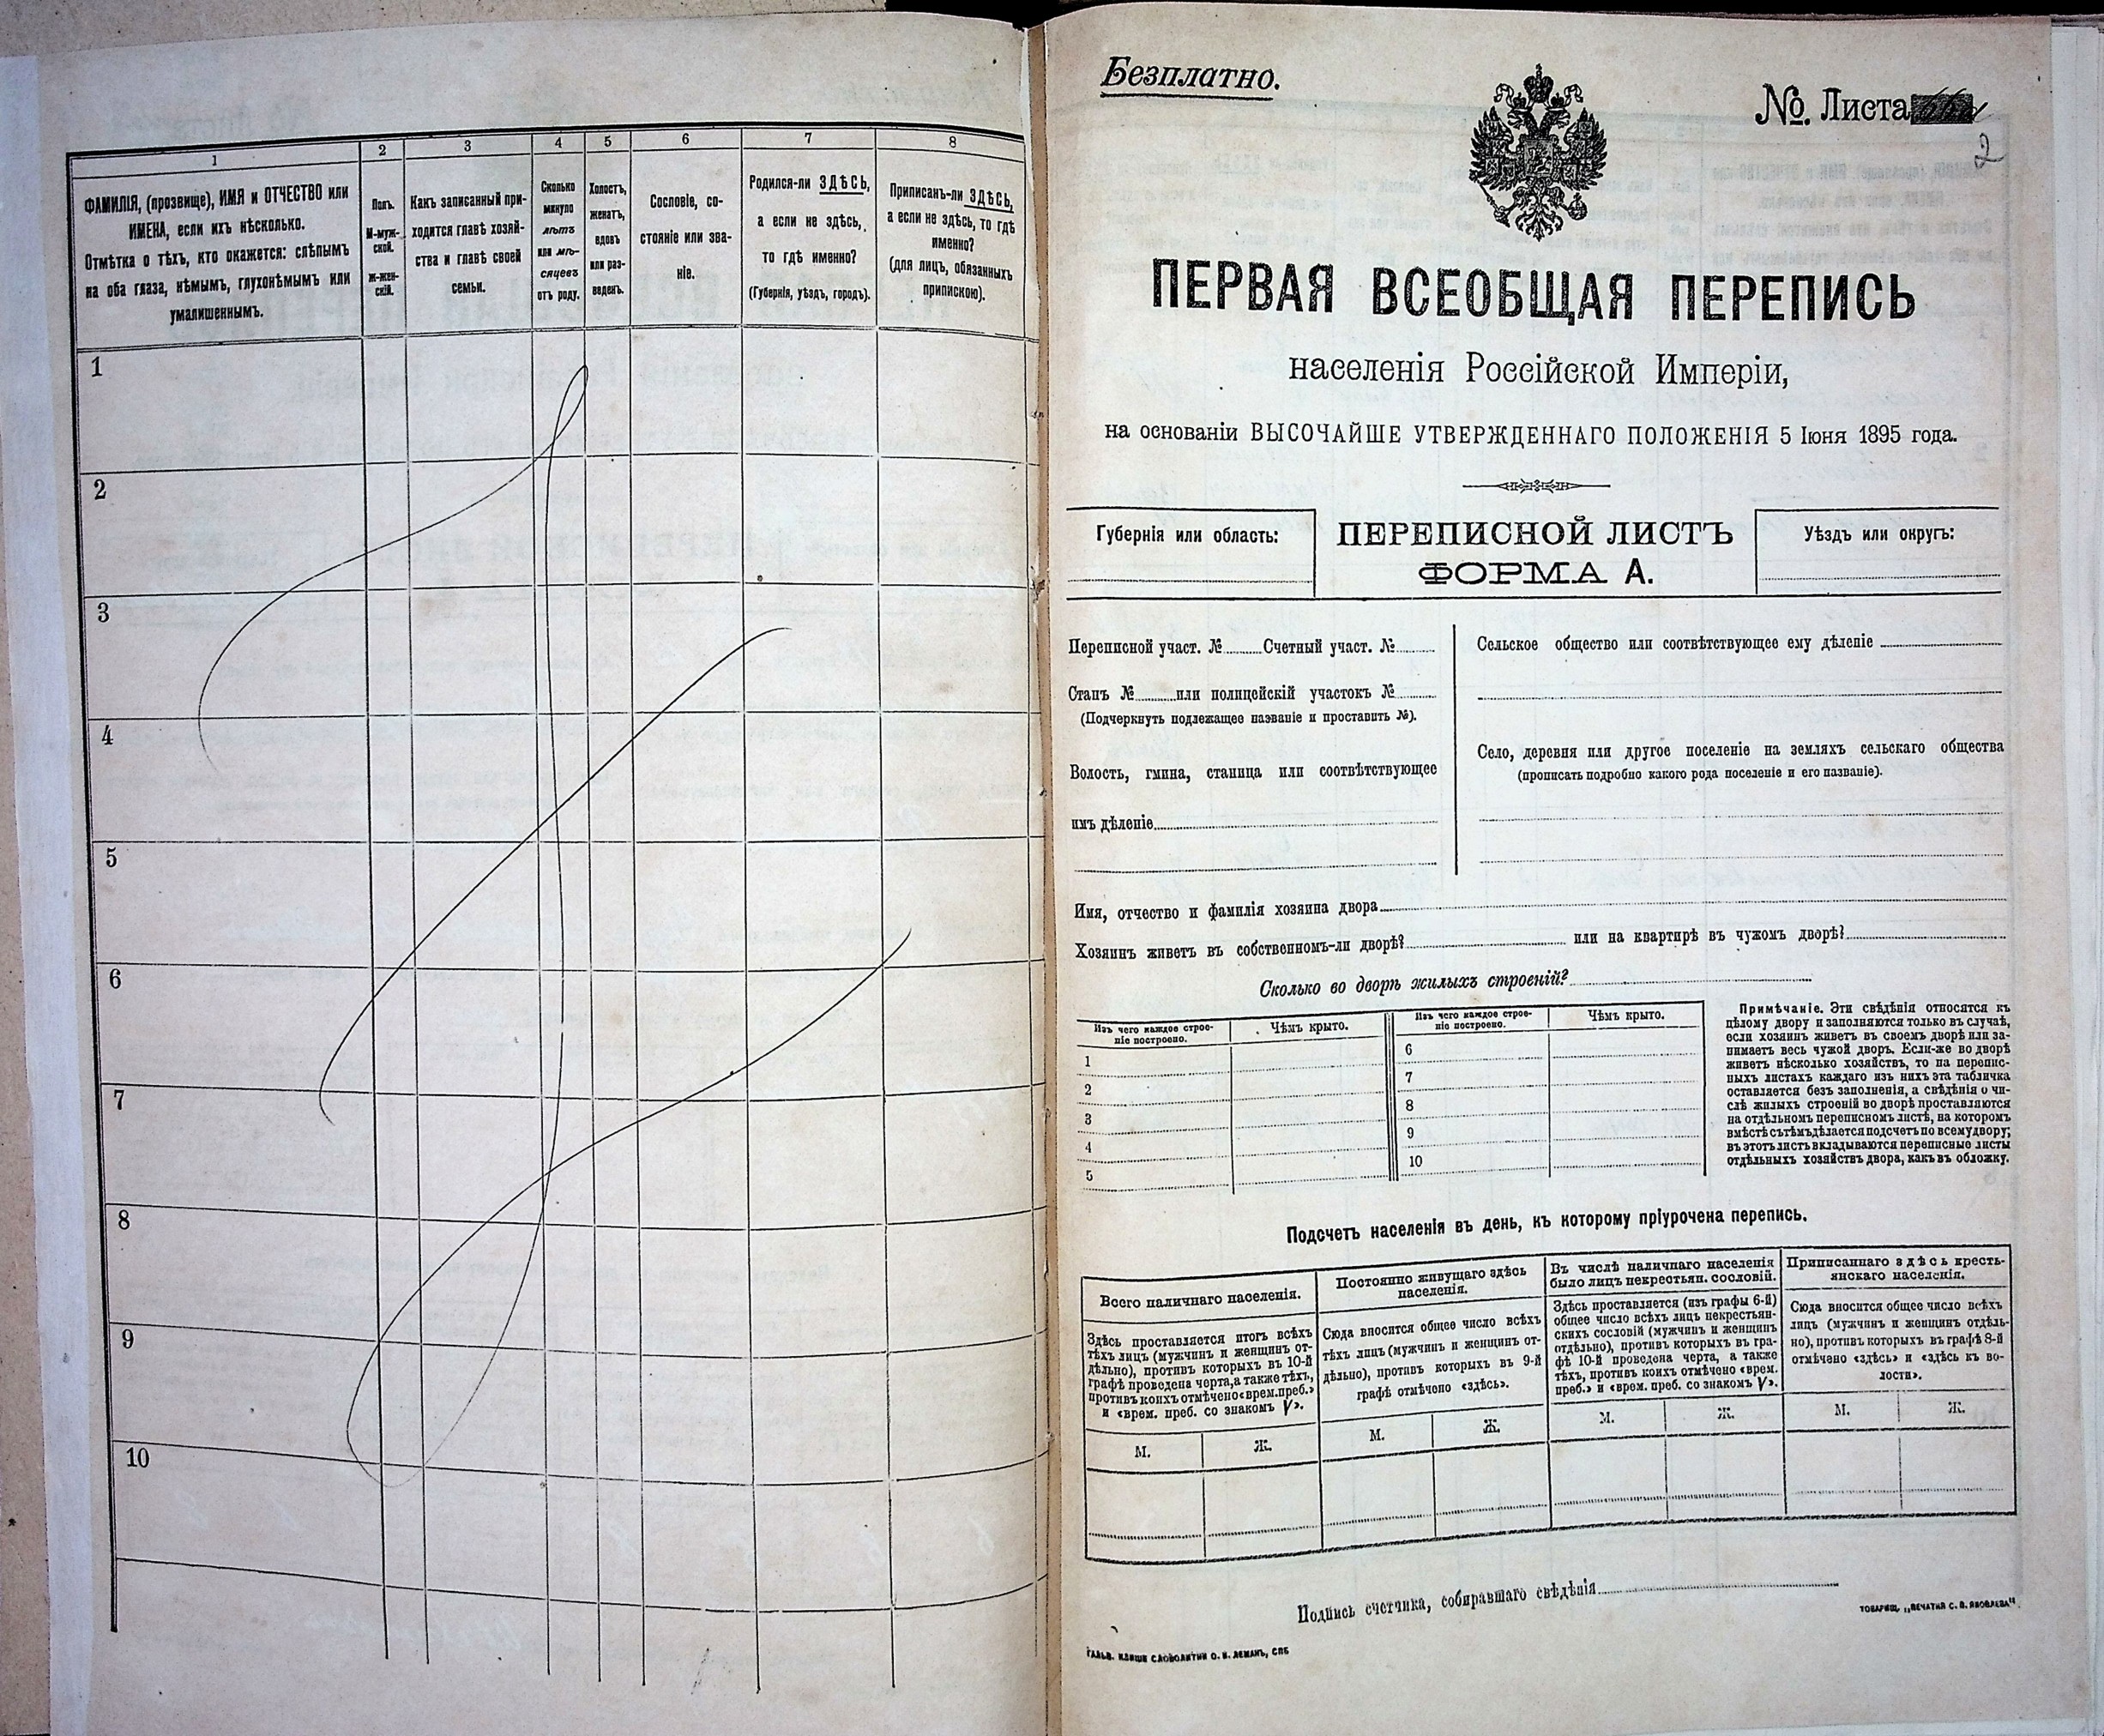 1
ФАМИЛІЯ, (прозвище), ИМЯ и ОТЧЕСТВО или
ИМЕНА, если ихъ нѣсколько.
Отмѣтка о тѣхъ, кто окажется: слѣпымъ
на оба глаза, нѣмымъ, глухонѣмымъ или
умалишеннымъ.
2
Полъ.
М-муж-
ской.
Ж-жен-
скій.
3
Какъ записанный при-
ходится главѣ хозяй-
ства и главѣ своей
семьи.
4
Сколько
минуло
лѣтъ
или мѣ-
сяцевъ
отъ роду.
5
Холостъ,
женатъ,
вдовъ
или раз-
веденъ.
6
Сословіе, со-
стояніе или зва-
ніе.
7
Родился-ли ЗДѢСЬ,
а если не здѣсь,
то гдѣ именно?
(Губернія, уѣздъ, городъ).
8
Приписанъ-ли ЗДѢСЬ,
а если не здѣсь, то гдѣ
именно?
(для лицъ, обязанныхъ
припискою).
1
2
3
4
5
6
7
8
9
10
Безплатно.
№. Листа
2
ПЕРВАЯ ВСЕОБЩАЯ ПЕРЕПИСЬ
населенія Россійской Имперіи,
на основаніи ВЫСОЧАЙШЕ УТВЕРЖДЕННАГО ПОЛОЖЕНІЯ 5 Іюня 1895 года.
Губернія или область:
ПЕРЕПИСНОЙ ЛИСТЪ
ФОРМА А.
Уѣздъ или округъ:
Переписной участ. № Счетный участ. №
Станъ № или полицейскій участокъ №
(Подчеркнуть подлежащее названіе и проставить №).
Волость, гмина, станица или соотвѣтствующее
имъ дѣленіе
Сельское общество или соотвѣтствующее ему дѣленіе
Село, деревня или другое поселеніе на земляхъ сельскаго общества
(прописать подробно какого рода поселеніе и его названіе).
Имя, отчество и фамилія хозяина двора
Хозяинъ живетъ въ собственномъ-ли дворѣ? или на квартирѣ въ чужомъ дворѣ?
Сколько во дворѣ жилыхъ строеній?
Изъ чего каждое строе-
ніе построено.
Чѣмъ крыто.
1
2
3
4
5
Изъ чего каждое строе-
ніе построено.
Чѣмъ крыто.
6
7
8
9
10
Примѣчаніе. Эти свѣдѣнія относятся къ
цѣлому двору и заполняются только въ случаѣ,
если хозяинъ живетъ въ своемъ дворѣ или за-
нимаетъ весь чужой дворъ. Если-же во дворѣ
живетъ нѣсколько хозяйствъ, то на перепис-
ныхъ листахъ каждаго изъ нихъ эта табличка
оставляется безъ заполненія, а свѣдѣнія о чи-
слѣ жилыхъ строеній во дворѣ проставляются
на отдѣльномъ переписномъ листѣ, на которомъ
вмѣстѣ съ тѣмъ дѣлается подсчетъ по всему двору;
въ этотъ листъ вкладываются переписные листы
отдѣльныхъ хозяйствъ двора, какъ въ обложку.
Подсчетъ населенія въ день, къ которому пріурочена перепись.
Всего наличнаго населенія.
Здѣсь проставляется итогъ всѣхъ
тѣхъ лицъ (мужчинъ и женщинъ от-
дѣльно), противъ которыхъ въ 10-й
графѣ проведена черта, а также тѣхъ,
противъ коихъ отмѣчено «врем. преб.»
и «врем. преб. со знакомъ V».
М.
Ж.
Постоянно живущаго здѣсь
населенія.
Сюда вносится общее число всѣхъ
тѣхъ лицъ (мужчинъ и женщинъ от-
дѣльно), противъ которыхъ въ 9-й
графѣ отмѣчено «здѣсь».
М.
Ж.
Въ числѣ наличнаго населенія
было лицъ некрестьян. сословій.
Здѣсь проставляется (изъ графы 6-й)
общее число всѣхъ лицъ некрестьян-
скихъ сословій (мужчинъ и женщинъ
отдѣльно), противъ которыхъ въ гра-
фѣ 10-й проведена черта, а также
тѣхъ, противъ коихъ отмѣчено «врем.
преб.» и «врем. преб. со знакомъ V».
М.
Ж.
Приписаннаго здѣсь кресть-
янскаго населенія.
Сюда вносится общее число всѣхъ
лицъ (мужчинъ и женщинъ отдѣль-
но), противъ которыхъ въ графѣ 8-й
отмѣчено «здѣсь» и «здѣсь къ во-
лости».
М.
Ж.
Подпись счетчика, собиравшаго свѣдѣнія
ГАЛЬВ. КЛИШЕ СЛОВОЛИТНИ О. И. ЛЕМАНЪ, СПБ
ТОВАРИЩ. „ПЕЧАТНЯ С. П. ЯКОВЛЕВА“